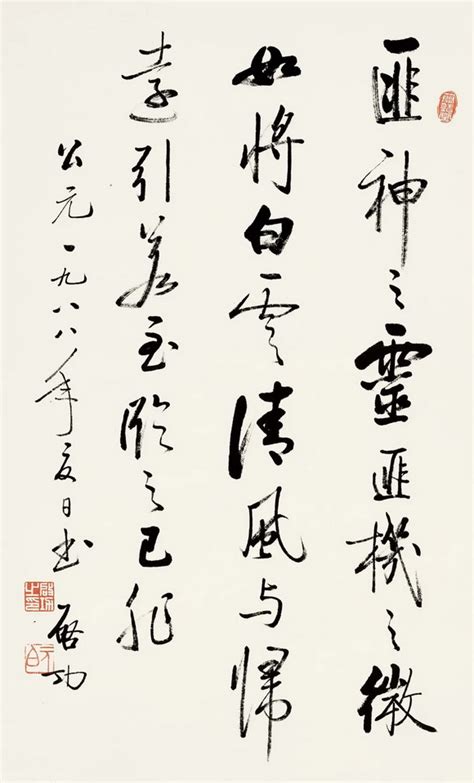 匪神之靈匪機之微
如將白雲清風与歸
遠引若至臨之已非
公元一九八八年夏日書
啟功
啟功之印
元白